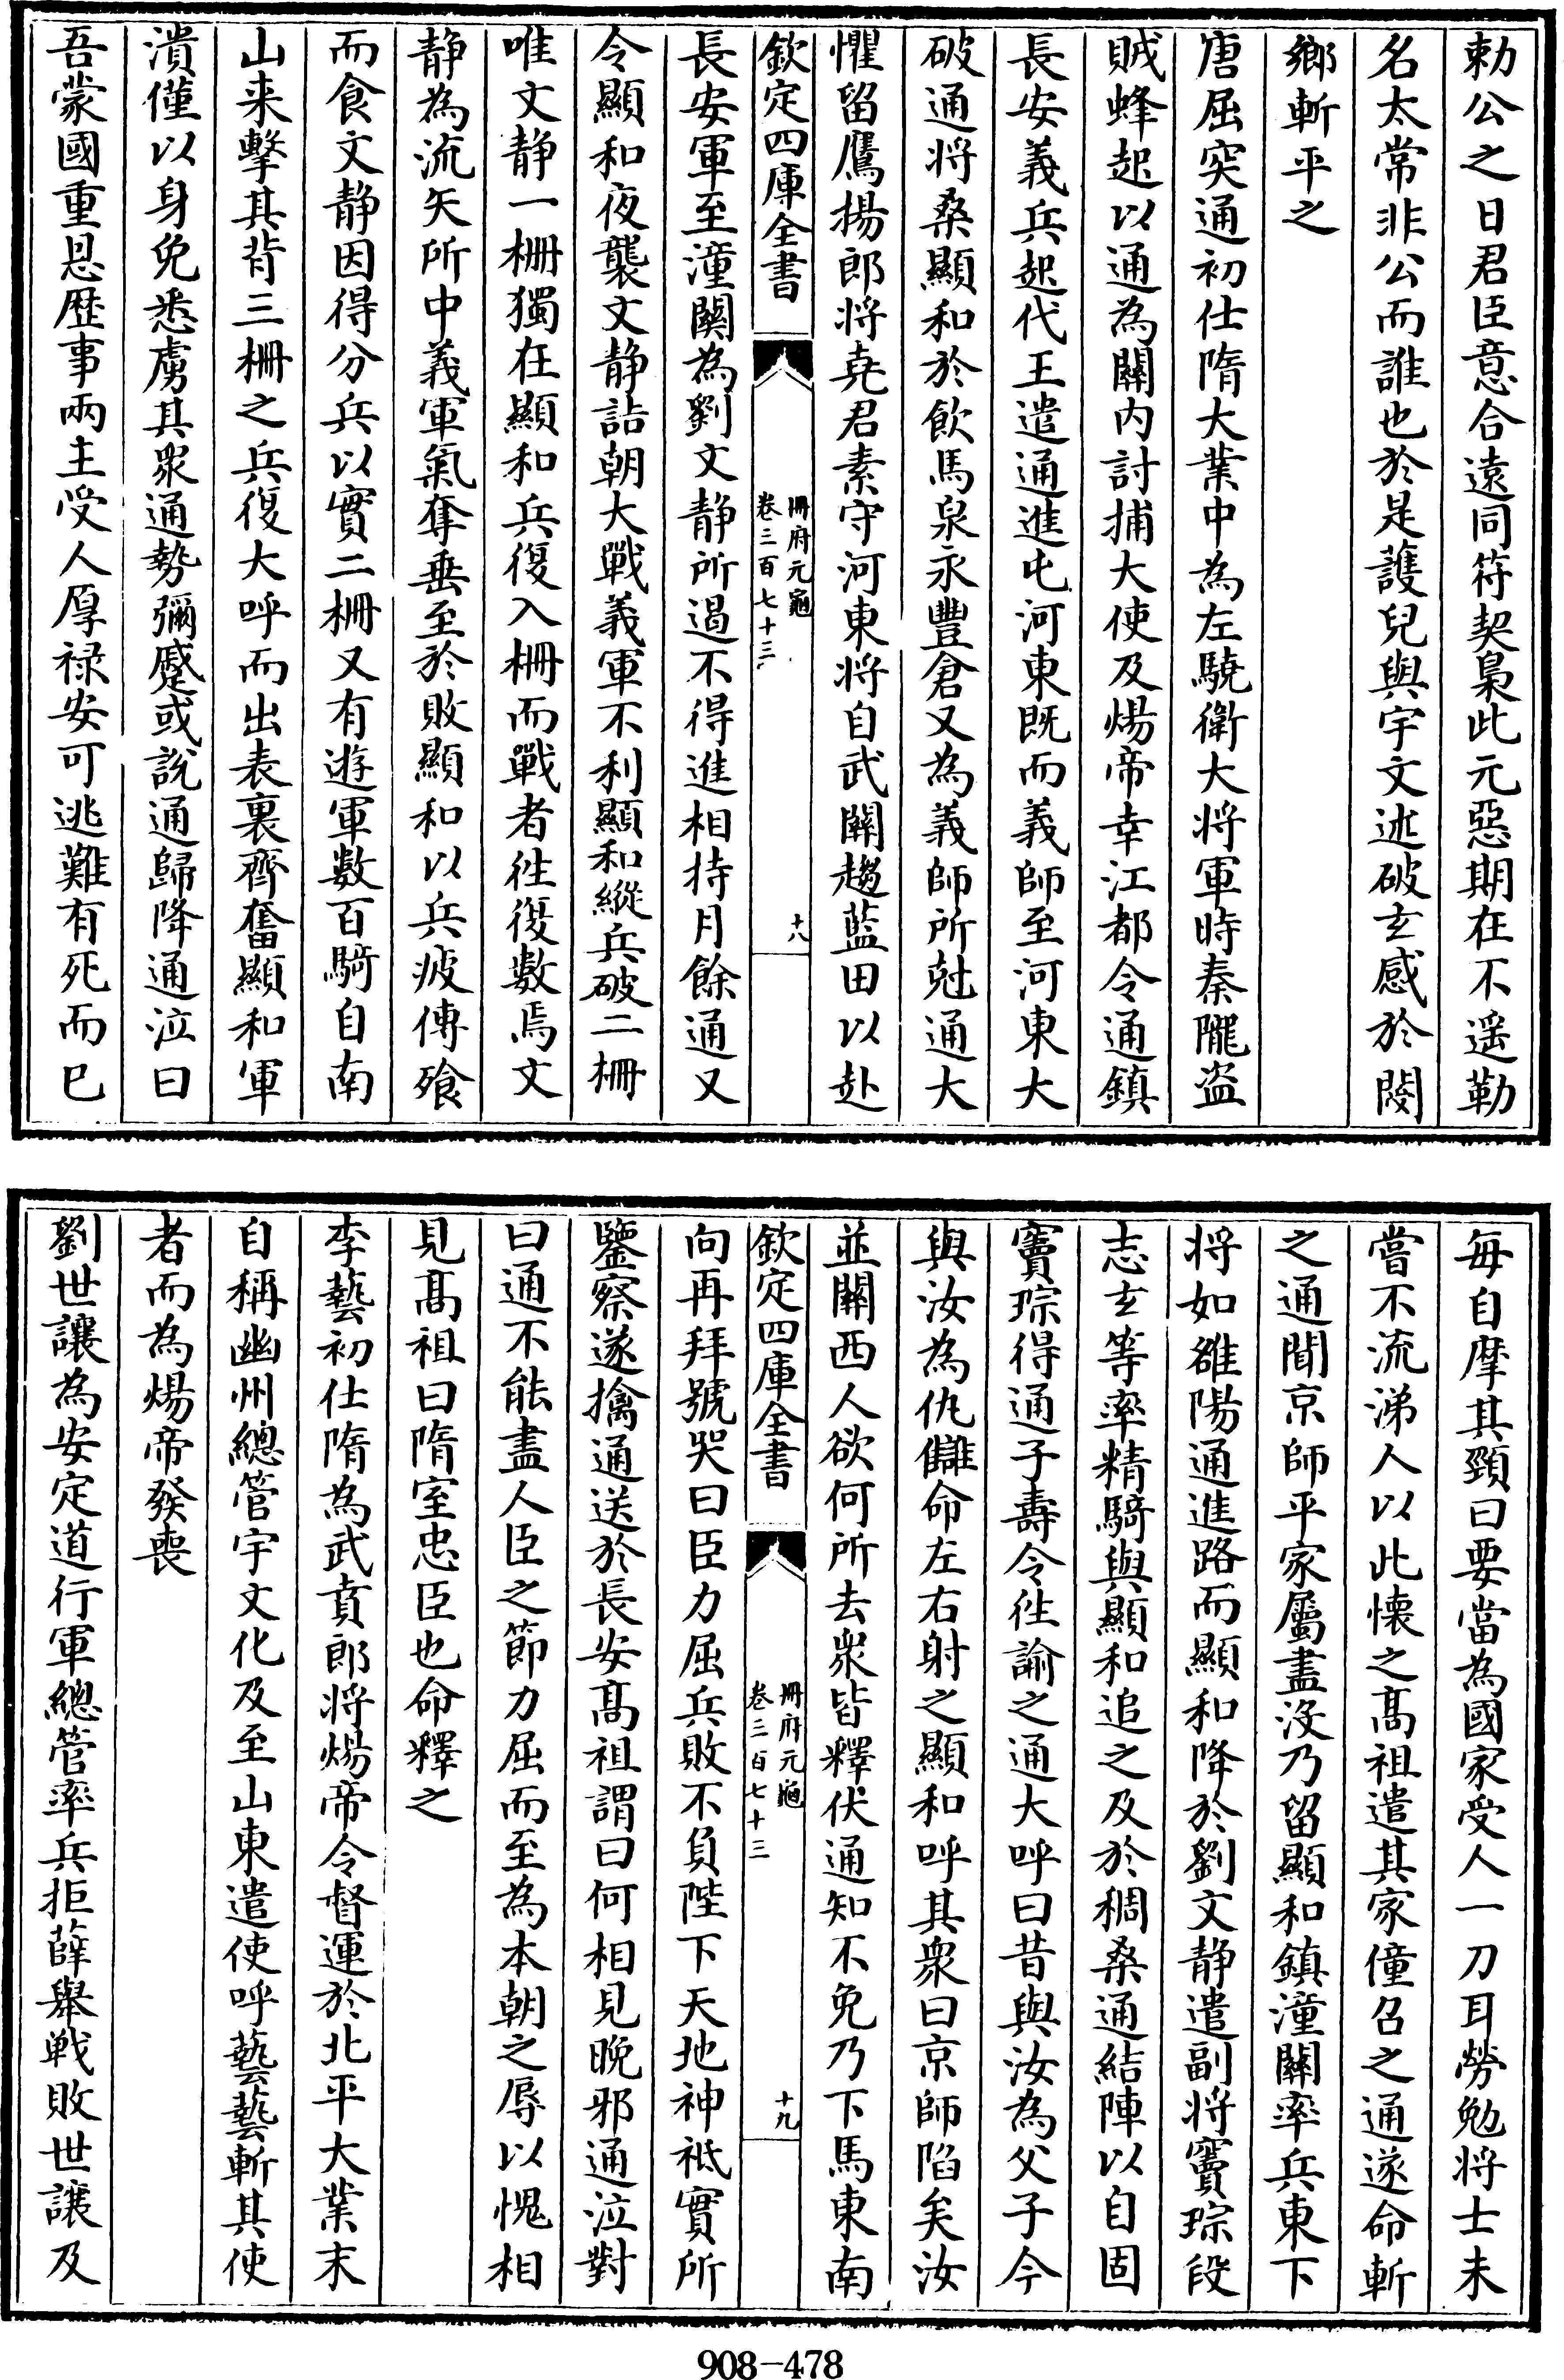 勅公之日君臣意合遠同符契梟此元惡期在不遥勒
名太常非公而誰也於是䕶兒與宇文述破玄感於閿
鄉斬平之
唐屈突通初仕隋大業中為左驍衛大将軍時秦隴盗
賊蜂起以通為關内討捕大使及煬帝幸江都令通鎮
長安義兵起代王遣通進屯河東既而義師至河東大
破通将桑顯和於飲馬泉永豐倉又為義師所尅通大
懼留鷹揚郎将堯君素守河東将自武關趨藍田以赴
欽定四庫全書
冊府元龜
卷三百七十三
十八
長安軍至潼關為劉文静所遏不得進相持月餘通又
令顯和夜襲文静詰朝大戰義軍不利顯和縱兵破二柵
唯文静一柵獨在顯和兵復入柵而戰者徃復數焉文
静為流矢所中義軍氣奪垂至於敗顯和以兵疲傳飱
而食文静因得分兵以實二柵又有遊軍數百騎自南
山来擊其背三柵之兵復大呼而出表裏齊奮顯和軍
潰僅以身免悉虜其衆通勢彌蹙或說通歸降通泣曰
吾蒙國重恩歴事兩主受人厚禄安可逃難有死而已
每自摩其頸曰要當為國家受人一刀耳勞勉将士未
嘗不流涕人以此懐之髙祖遣其家僮召之通遂命斬
之通聞京師平家屬盡沒乃留顯和鎮潼關率兵東下
将如雒陽通進路而顯和降於劉文静遣副将竇琮段
志玄等率精騎與顯和追之及於稠桑通結陣以自固
竇琮得通子壽令徃諭之通大呼曰昔與汝為父子今
與汝為仇讎命左右射之顯和呼其衆曰京師陷矣汝
並關西人欲何所去衆皆釋伏通知不免乃下馬東南
欽定四庫全書
冊府元龜
卷三百七十三
十九
向再拜號哭曰臣力屈兵敗不負陛下天地神祗實所
鑒察遂擒通送於長安髙祖謂曰何相見晚邪通泣對
曰通不能盡人臣之節力屈而至為本朝之辱以愧相
見髙祖曰隋室忠臣也命釋之
李藝初仕隋為武賁郎将煬帝令督運於北平大業末
自稱幽州總管宇文化及至山東遣使呼藝藝斬其使
者而為煬帝發喪
劉世讓為安定道行軍總管率兵拒薛舉戰敗世讓及
908-478